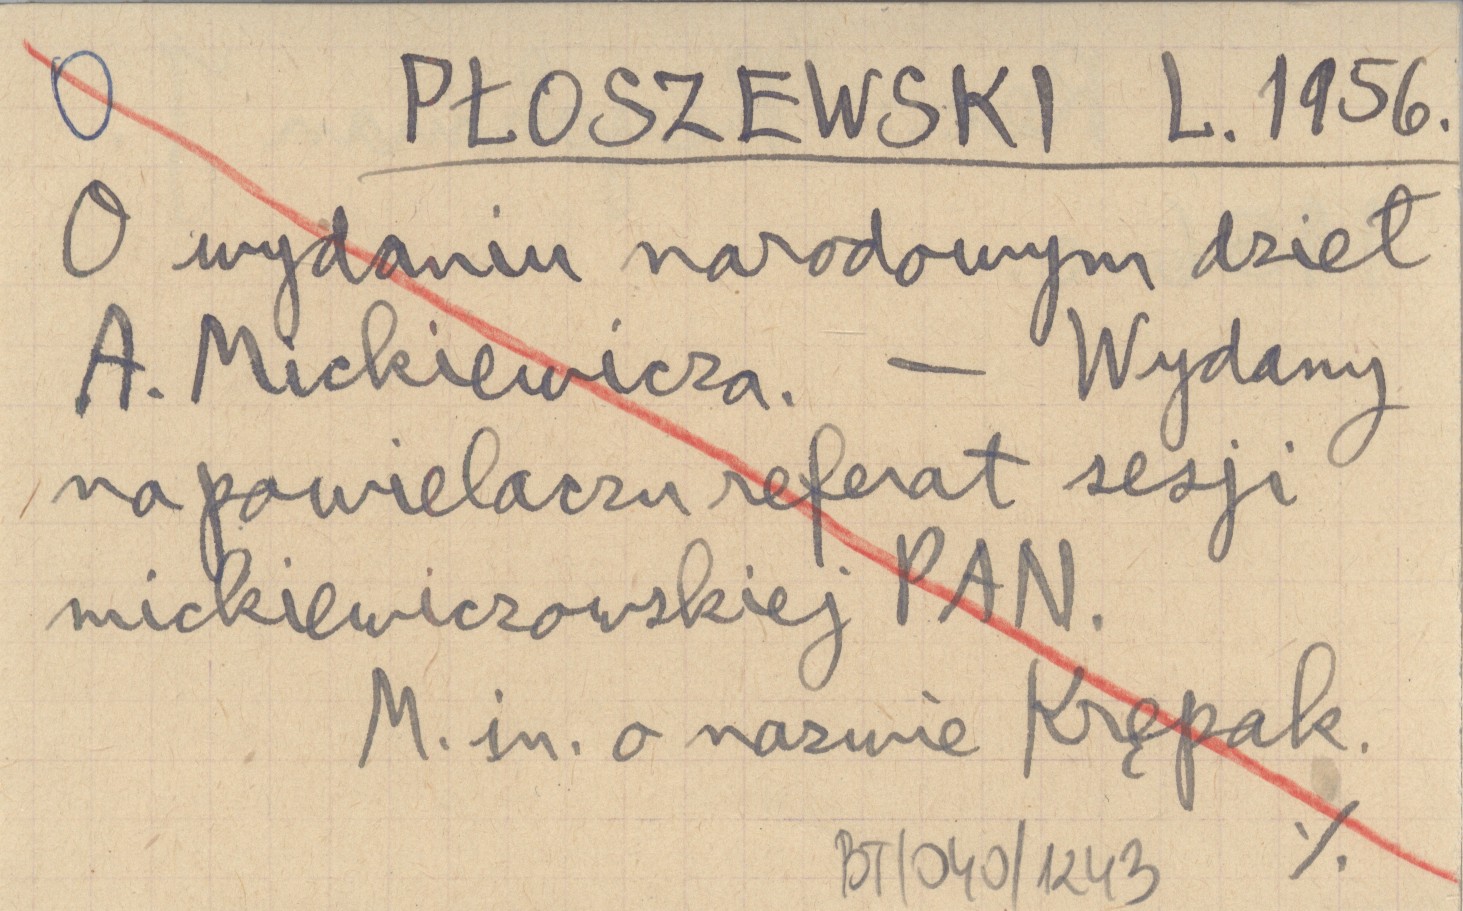 O PŁOSZEWSKI L. 1956.
O wydaniu narodowym dzieł
A. Mickiewicza. — Wydany
na powielaczu referat sesji
mickiewiczowskiej PAN.
M. in. o nazwie Krępak.
·/.
BT/040/1243